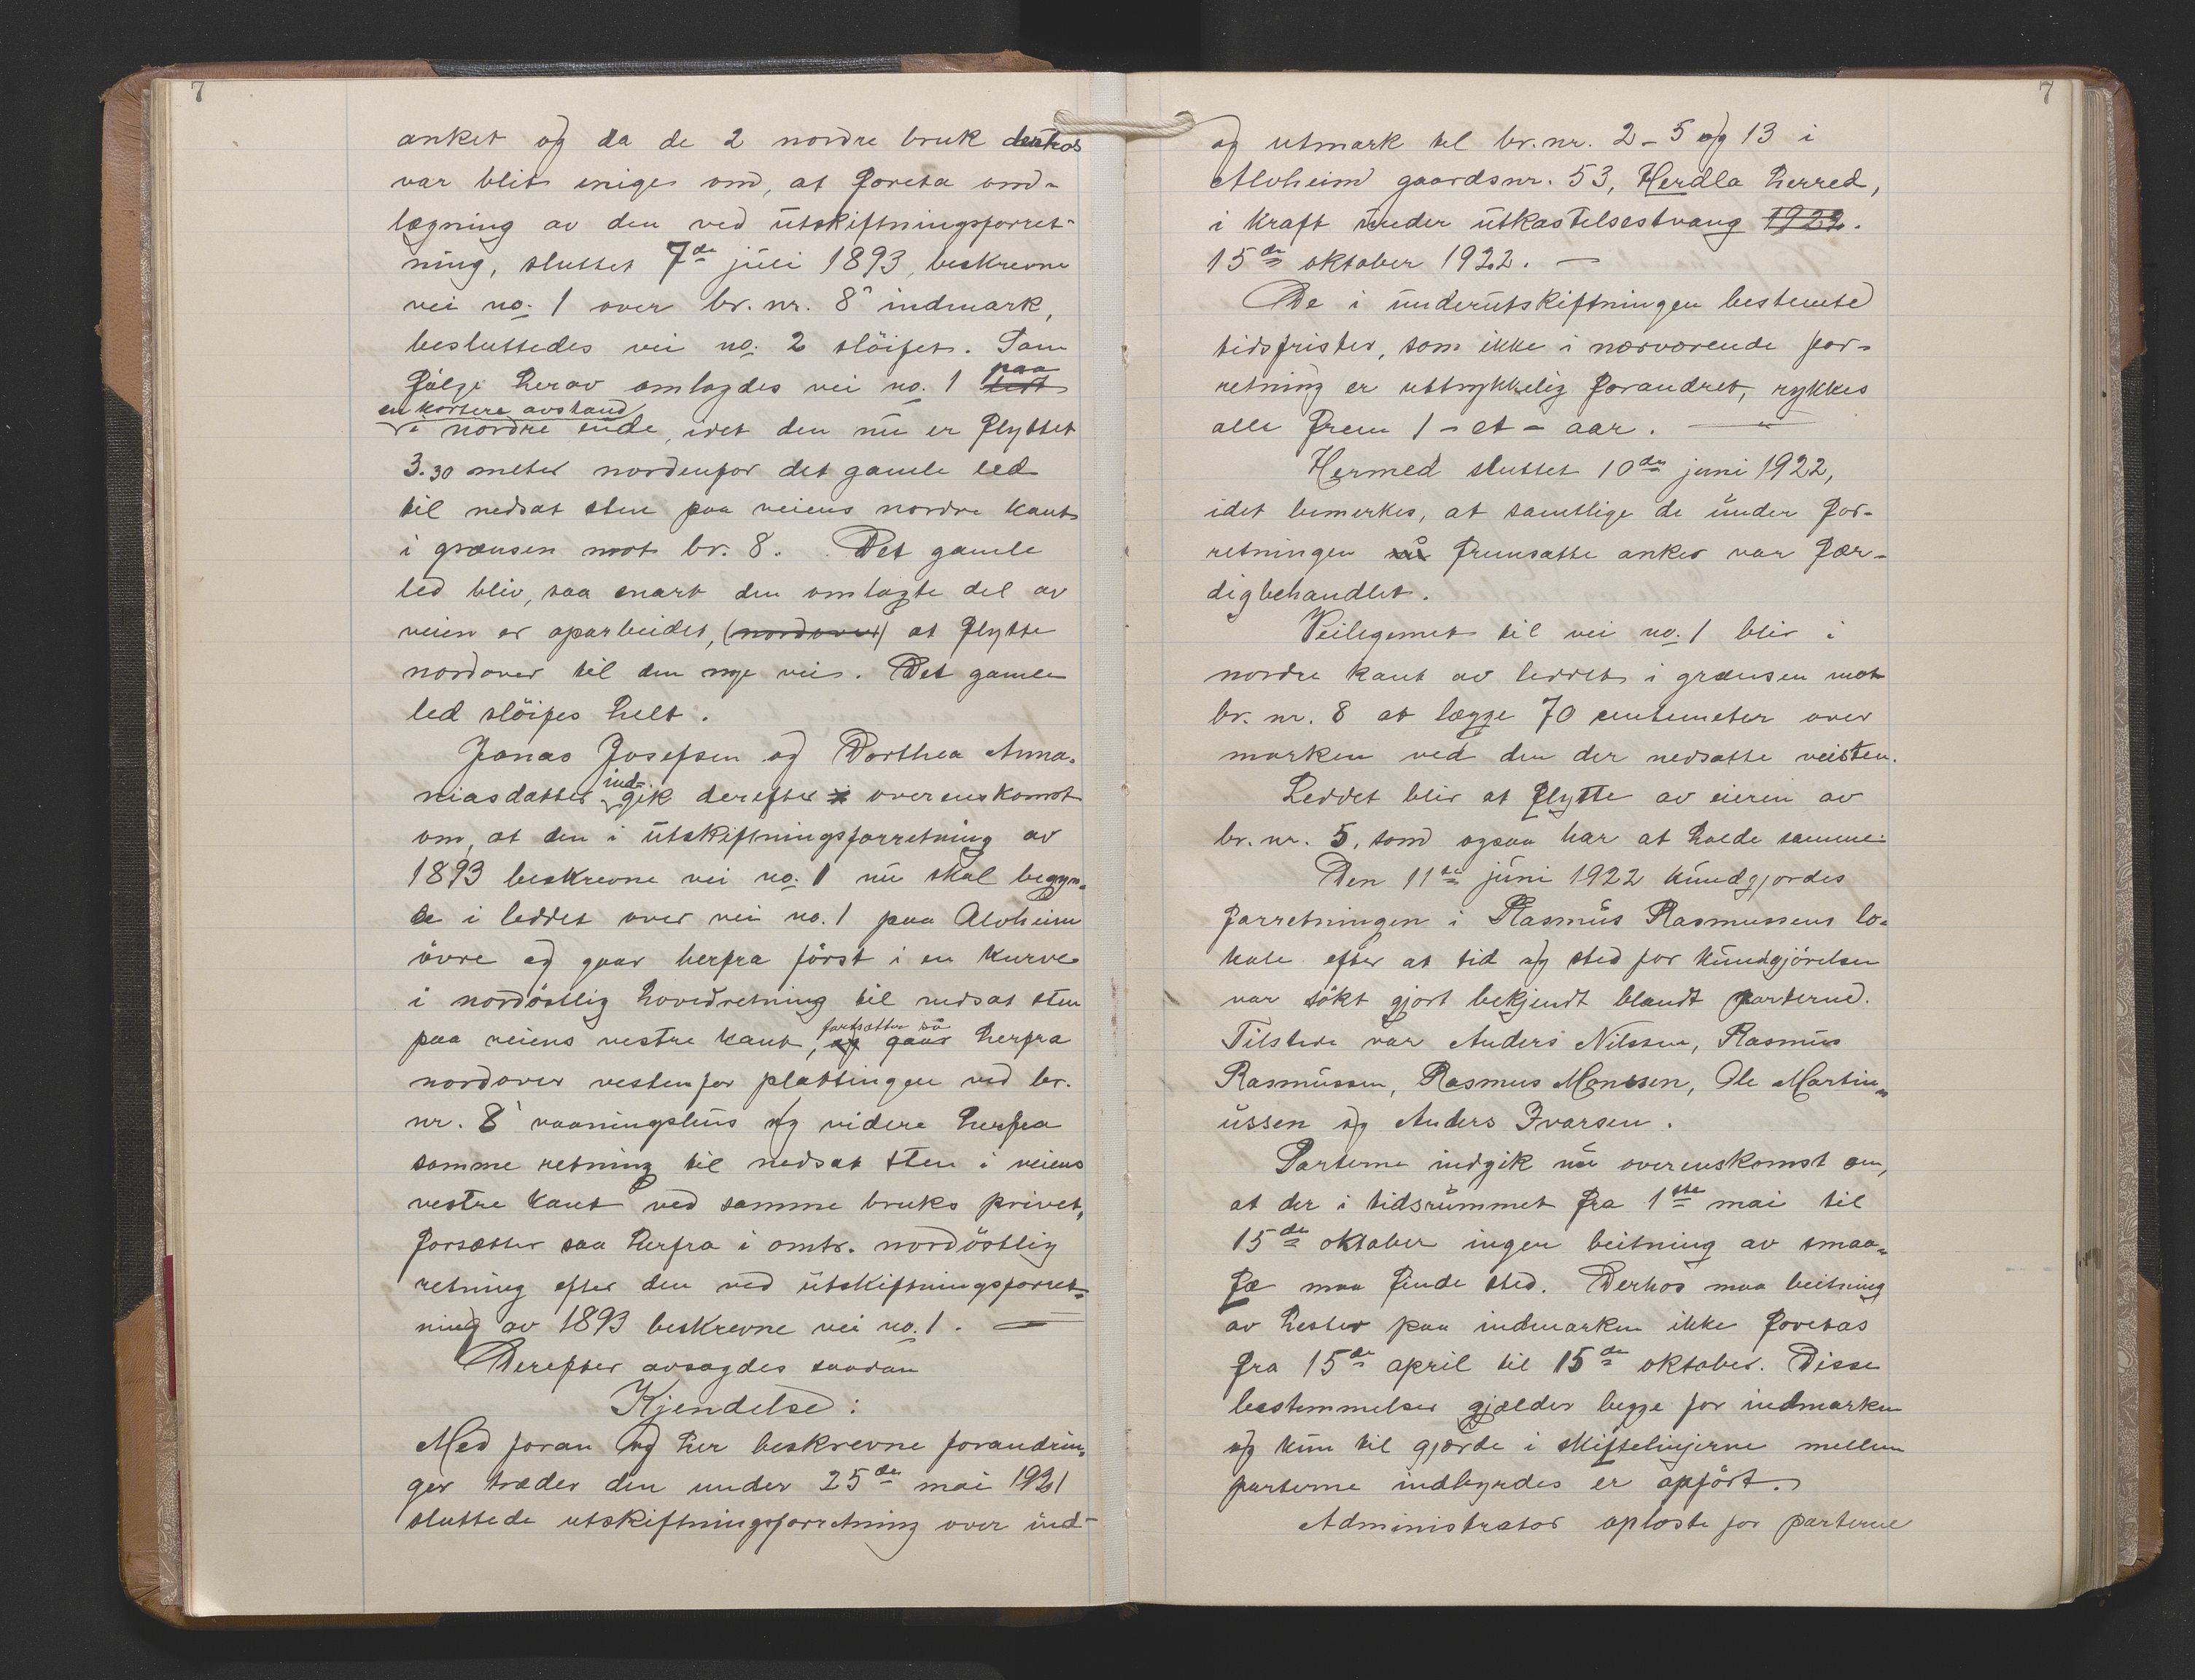 7
anket og da de 2 nordre bruk derhos
var blit enige om, at foreta om-
lægning av den ved utskiftningsforret-
ning, sluttet 7de juli 1893, beskrevne
vei no. 1 over br. nr. 8's indmark,
besluttedes vei no. 2 slöifet. Som
fölge herav omlagdes vei no. 1 paa
en kortere avstand
i nordre ende, idet den nu er flyttet
3.30 meter nordenfor det gamle led
til nedsat sten paa veiens nordre kant
i grænsen mot br. 8. Det gamle
led blir, saa snart den omlagte del av
veien er oparbeidet, (nordover) at flytte
nordover til den nye vei. Det gamle
led slöifes helt.
Jonas Josefsen og Dorthea Anna-
niasdatter indgik derefter overenskomst
om, at den i utskiftningsforretning av
1893 beskrevne vei no. 1 nu skal begyn-
de i leddet over vei no. 1 paa Alvheim
övre og gaar herfra först i en kurve
i nordöstlig hovedretning til nedsat sten
paa veiens vestre kant, og gaar fortsætter så herfra
nordover vestenfor plattingen ved br.
nr. 8's vaaningshus og videre herfra
samme retning til nedsat sten i veiens
vestre kant ved samme bruks privet,
forsætter saa herfra i omtr. nordöstlig
retning efter den ved utskiftningsforret-
ning av 1893 beskrevne vei no. 1.
Derefter avsagdes saadan
Kjendelse:
Med foran og her beskrevne forandrin-
ger træder den under 25de mai 1921
sluttede utskiftningsforretning over ind-
7
og utmark til br. nr. 2-5 og 13 i
Alvheim gaardsnr. 53, Herdla herred,
i kraft under utkastelsestvang 1922.
15de oktober 1922. —
De i underutskiftningen bestemte
tidsfrister, som ikke i nærværende for-
retning er uttrykkelig forandret, rykkes
alle frem 1 - et - aar.
Hermed sluttet 10de juni 1922,
idet bemerkes, at samtlige de under for-
retningen fremsatte anker var fær-
digbehandlet.
Veilegemet til vei no. 1 blir i
nordre kant av leddet i grænsen mot
br. nr. 8 at lægge 70 centemeter over
marken ved den der nedsatte veisten.
Leddet blir at flytte av eieren av
br. nr. 5, som ogsaa har at holde samme.
Den 11te juni 1922 kundgjordes
forretningen i Rasmus Rasmussens lo-
kale efter at tid og sted for kundgjörelsen
var sökt gjort bekjendt blandt parterne.
Tilstede var Anders Nilssen, Rasmus
Rasmussen, Rasmus Monssen, Ole Martin-
ussen og Anders Ivarsen.
Parterne indgik nu overenskomst om,
at der i tidsrummet fra 1ste mai til
15de oktober ingen beitning av smaa-
fæ maa finde sted. Derhos maa beitning
av hester paa indmarken ikke foretas
fra 15de april til 15de oktober. Disse
bestemmelser gjælder begge for indmarken
og kun til gjærde i skiftelinjerne mellem
parterne indbyrdes er opfört.
Administrator oplæste for parterne